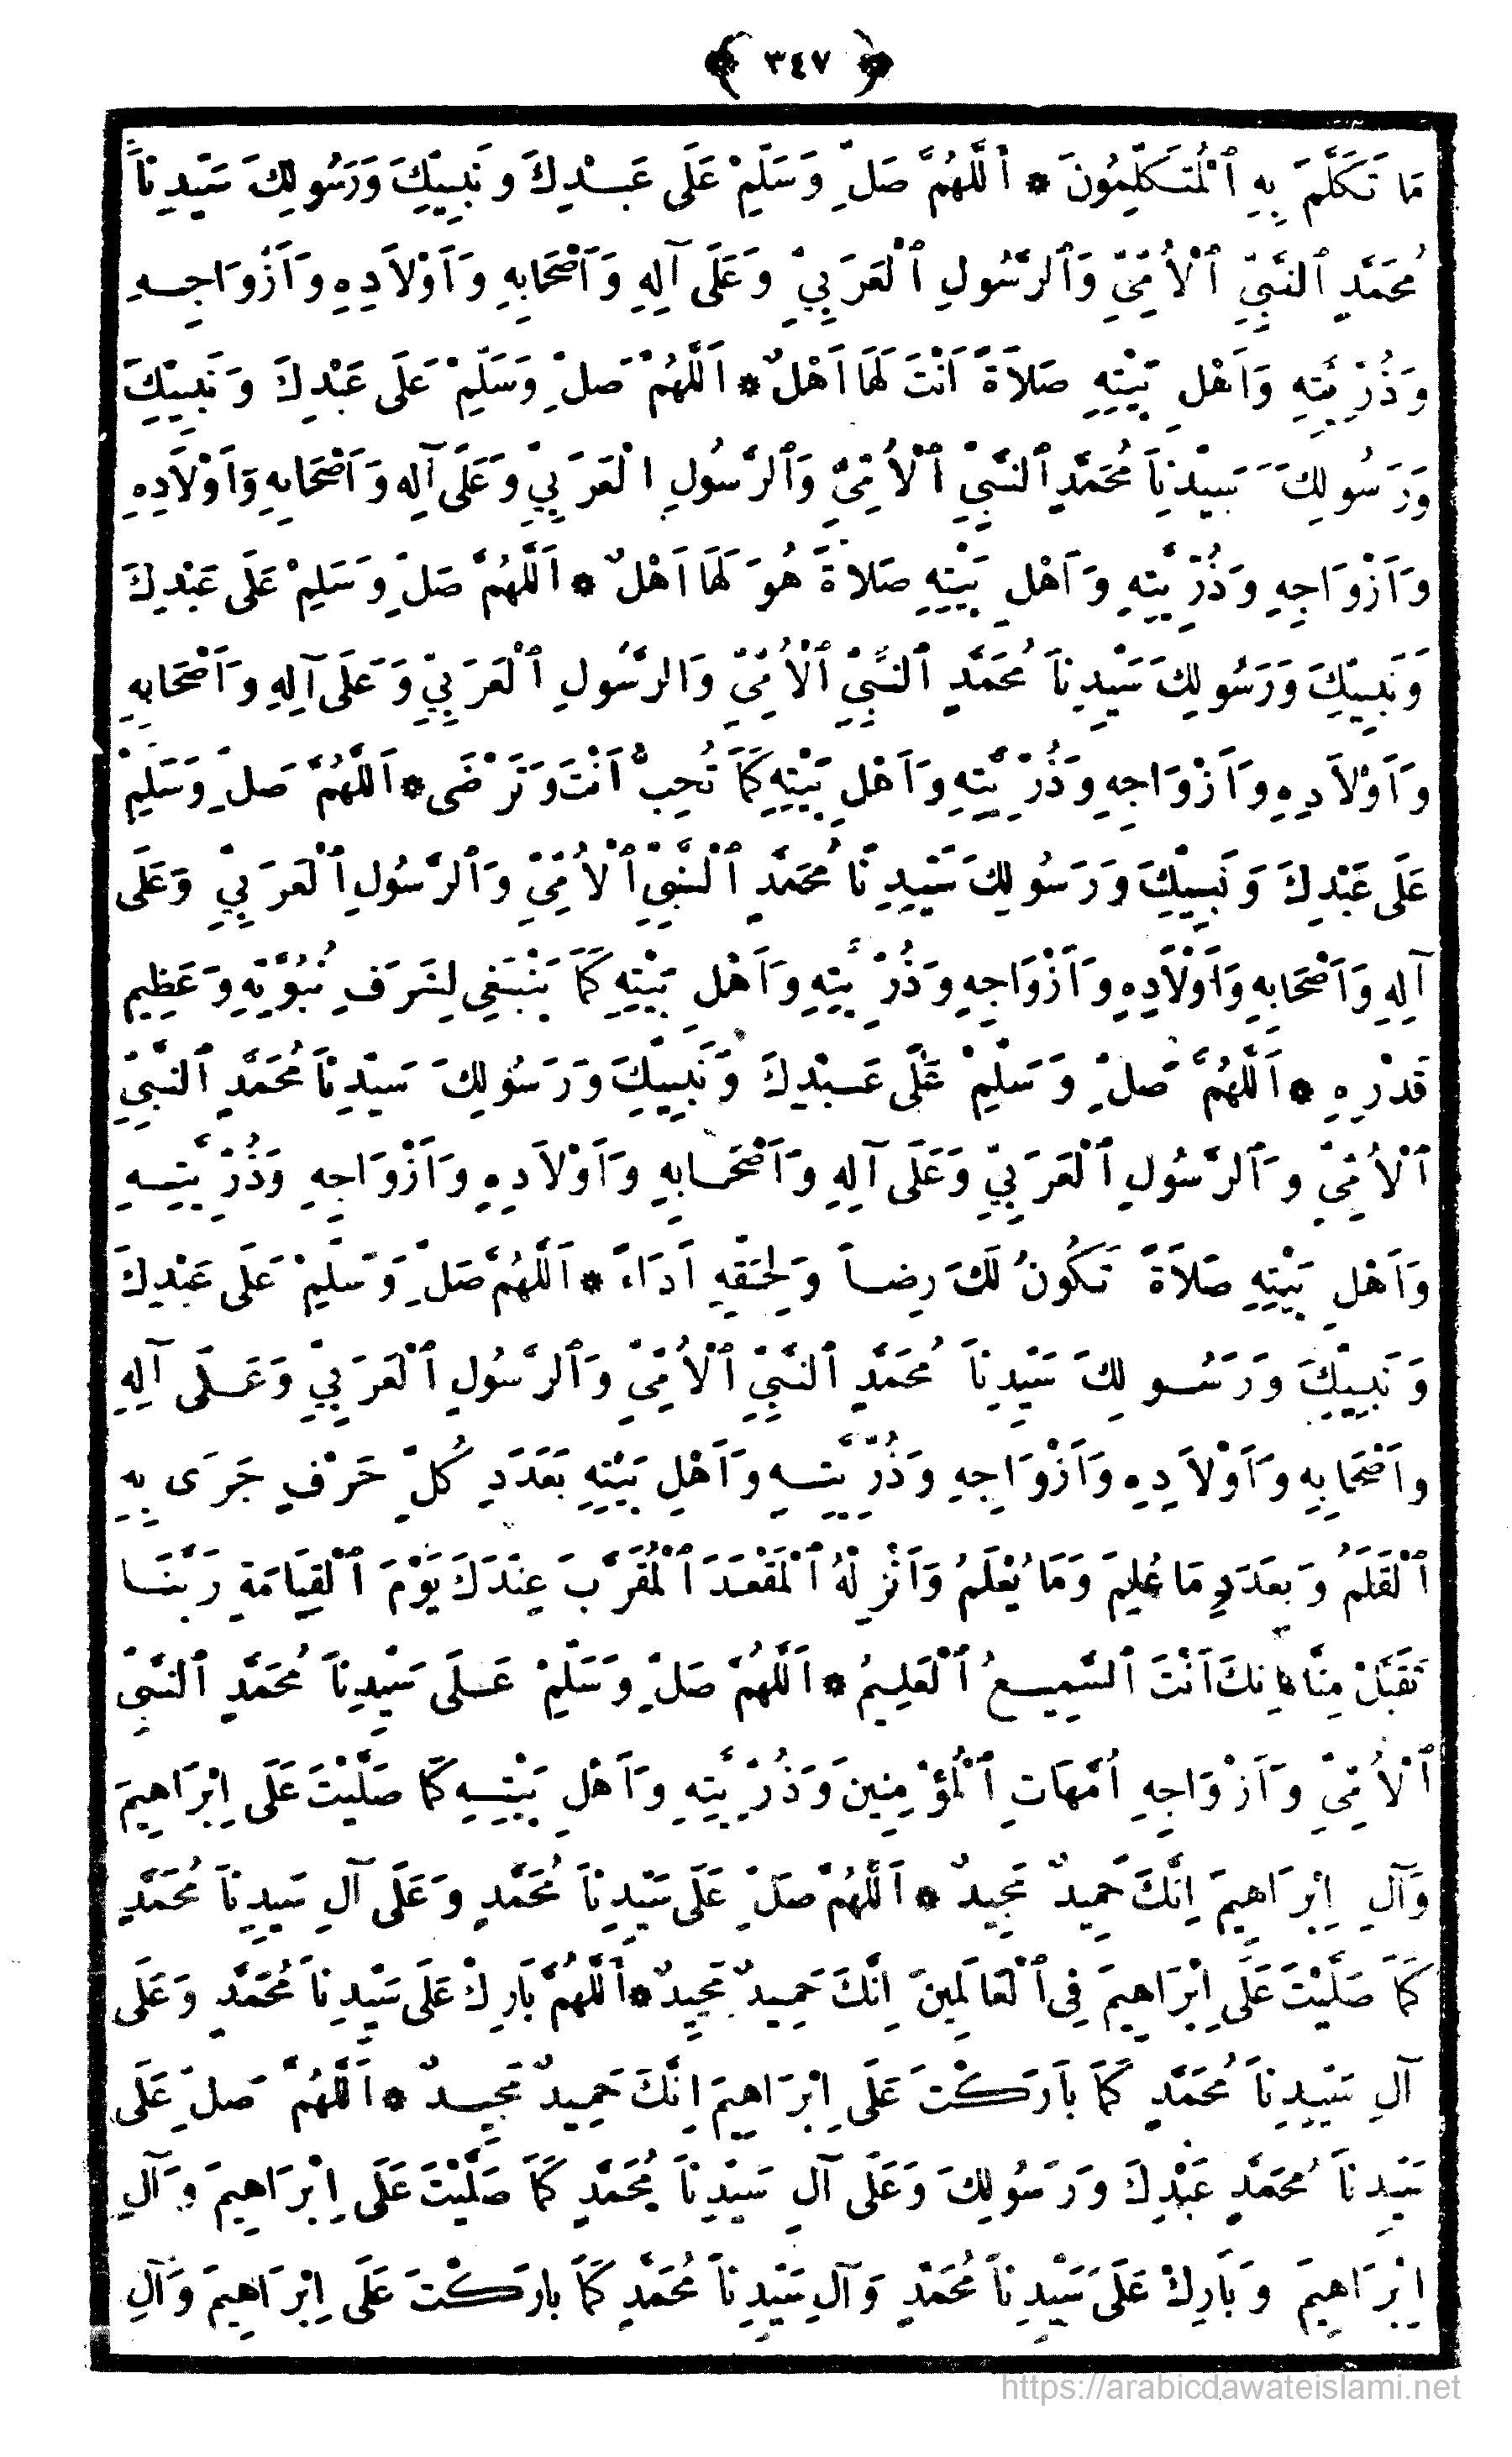 ﴿ ٣٤٧ ﴾
مَا تَكَلَّمَ بِهِ ٱلْمُتَكَلِّمُونَ * أَللّٰهُمَّ صَلِّ وَسَلِّمْ عَلَى عَبْدِكَ وَنَبِيِّكَ وَرَسُولِكَ سَيِّدِنَا
مُحَمَّدٍ ٱلنَّبِيِّ ٱلْأُمِّيِّ وَٱلرَّسُولِ ٱلْعَرَبِيِّ وَعَلَى آلِهِ وَأَصْحَابِهِ وَأَوْلَادِهِ وَأَزْوَاجِهِ
وَذُرِّيَّتِهِ وَاَهْلِ بَيْتِهِ صَلَاةً اَنْتَ لَهَا اَهْلٌ * اَللّٰهُمَّ صَلِّ وَسَلِّمْ عَلَى عَبْدِكَ وَنَبِيِّكَ
وَرَسُولِكَ سَيِّدِنَا مُحَمَّدٍ ٱلنَّبِيِّ ٱلْأُمِّيِّ وَٱلرَّسُولِ الْعَرَبِيِّ وَعَلَى آلِهِ وَاَصْحَابِهِ وَاَوْلَادِهِ
وَاَزْوَاجِهِ وَذُرِّيَّتِهِ وَاَهْلِ بَيْتِهِ صَلَاةً هُوَ لَهَا اَهْلٌ * اَللّٰهُمَّ صَلِّ وَسَلِّمْ عَلَى عَبْدِكَ
وَنَبِيِّكَ وَرَسُولِكَ سَيِّدِنَا مُحَمَّدٍ ٱلنَّبِيِّ ٱلْأُمِّيِّ وَالرَّسُولِ ٱلْعَرَبِيِّ وَعَلَى آلِهِ وَاَصْحَابِهِ
وَاَوْلَادِهِ وَاَزْوَاجِهِ وَذُرِّيَّتِهِ وَاَهْلِ بَيْتِهِ كَمَا تُحِبُّ اَنْتَ وَتَرْضَى * اَللّٰهُمَّ صَلِّ وَسَلِّمْ
عَلَى عَبْدِكَ وَنَبِيِّكَ وَرَسُولِكَ سَيِّدِنَا مُحَمَّدٍ ٱلنَّبِيِّ ٱلْأُمِّيِّ وَٱلرَّسُولِ ٱلْعَرَبِيِّ وَعَلَى
آلِهِ وَاَصْحَابِهِ وَاَوْلَادِهِ وَاَزْوَاجِهِ وَذُرِّيَّتِهِ وَاَهْلِ بَيْتِهِ كَمَا يَنْبَغِى لِشَرَفِ نُبُوَّتِهِ وَعَظِيمِ
قَدْرِهِ * اَللّٰهُمَّ صَلِّ وَسَلِّمْ عَلَى عَبْدِكَ وَنَبِيِّكَ وَرَسُولِكَ سَيِّدِنَا مُحَمَّدٍ ٱلنَّبِيِّ
ٱلْأُمِّيِّ وَٱلرَّسُولِ ٱلْعَرَبِيِّ وَعَلَى آلِهِ وَاَصْحَابِهِ وَاَوْلَادِهِ وَاَزْوَاجِهِ وَذُرِّيَّتِهِ
وَاَهْلِ بَيْتِهِ صَلَاةً تَكُونُ لَكَ رِضاً وَلِحَقِّهِ اَدَاءً * اَللّٰهُمَّ صَلِّ وَسَلِّمْ عَلَى عَبْدِكَ
وَنَبِيِّكَ وَرَسُولِكَ سَيِّدِنَا مُحَمَّدٍ ٱلنَّبِيِّ ٱلْأُمِّيِّ وَٱلرَّسُولِ ٱلْعَرَبِيِّ وَعَلَى آلِهِ
وَاَصْحَابِهِ وَاَوْلَادِهِ وَاَزْوَاجِهِ وَذُرِّيَّتِهِ وَاَهْلِ بَيْتِهِ بِعَدَدِ كُلِّ حَرْفٍ جَرَى بِهِ
ٱلْقَلَمُ وَبِعَدَدِ مَا عُلِمَ وَمَا يُعْلَمُ وَاَنْزِلْهُ ٱلْمَقْعَدَ ٱلْمُقَرَّبَ عِنْدَكَ يَوْمَ ٱلْقِيَامَةِ رَبَّنَا
تَقَبَّلْ مِنَّا اِنَّكَ اَنْتَ ٱلسَّمِيعُ ٱلْعَلِيمُ * اَللّٰهُمَّ صَلِّ وَسَلِّمْ عَلَى سَيِّدِنَا مُحَمَّدٍ ٱلنَّبِيِّ
ٱلْأُمِّيِّ وَاَزْوَاجِهِ اُمَّهَاتِ ٱلْمُؤْمِنِينَ وَذُرِّيَّتِهِ وَاَهْلِ بَيْتِهِ كَمَا صَلَّيْتَ عَلَى اِبْرَاهِيمَ
وَآلِ اِبْرَاهِيمَ اِنَّكَ حَمِيدٌ مَجِيدٌ * اَللّٰهُمَّ صَلِّ عَلَى سَيِّدِنَا مُحَمَّدٍ وَعَلَى آلِ سَيِّدِنَا مُحَمَّدٍ
كَمَا صَلَّيْتَ عَلَى اِبْرَاهِيمَ فِى ٱلْعَالَمِينَ اِنَّكَ حَمِيدٌ مَجِيدٌ * أَللّٰهُمَّ بَارِكْ عَلَى سَيِّدِنَا مُحَمَّدٍ وَعَلَى
آلِ سَيِّدِنَا مُحَمَّدٍ كَمَا بَارَكْتَ عَلَى اِبْرَاهِيمَ اِنَّكَ حَمِيدٌ مَجِيدٌ * اَللّٰهُمَّ صَلِّ عَلَى
سَيِّدِنَا مُحَمَّدٍ عَبْدِكَ وَرَسُولِكَ وَعَلَى آلِ سَيِّدِنَا مُحَمَّدٍ كَمَا صَلَّيْتَ عَلَى اِبْرَاهِيمَ وَآلِ
اِبْرَاهِيمَ وَبَارِكْ عَلَى سَيِّدِنَا مُحَمَّدٍ وَآلِ سَيِّدِنَا مُحَمَّدٍ كَمَا بَارَكْتَ عَلَى اِبْرَاهِيمَ وَآلِ
https://arabicdawateislami.net